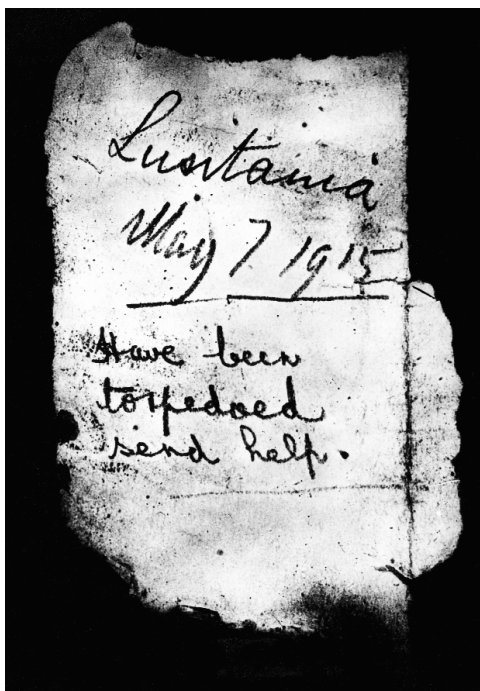 Lusitania
May 7 1915
Have been
torpedoed
send help.